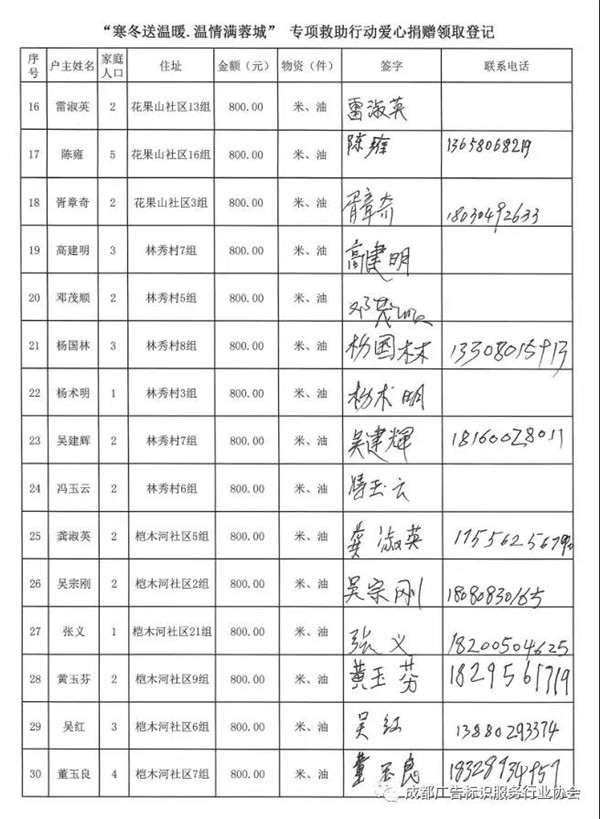 “寒冬送温暖.温情满蓉城” 专项救助行动爱心捐赠领取登记
序号 户主姓名 家庭人口 住址 金额（元） 物资（件） 签字 联系电话
16 雷淑英 2 花果山社区13组 800.00 米、油 雷淑英
17 陈雍 5 花果山社区16组 800.00 米、油 陈雍 13658068219
18 胥章奇 2 花果山社区3组 800.00 米、油 胥章奇 18030492633
19 高建明 3 林秀村7组 800.00 米、油 高建明
20 邓茂顺 2 林秀村5组 800.00 米、油 邓茂顺
21 杨国林 3 林秀村8组 800.00 米、油 杨国林 13308015913
22 杨术明 1 林秀村3组 800.00 米、油 杨术明
23 吴建辉 2 林秀村7组 800.00 米、油 吴建輝 18160028011
24 冯玉云 2 林秀村6组 800.00 米、油 冯玉云
25 龚淑英 2 桤木河社区5组 800.00 米、油 龚淑英
26 吴宗刚 2 桤木河社区2组 800.00 米、油 吴宗刚 18080830165
27 张义 1 桤木河社区21组 800.00 米、油 张义 18200504625
28 黄玉芬 2 桤木河社区9组 800.00 米、油 黄玉芬
29 吴红 3 桤木河社区6组 800.00 米、油 吴红 13880293374
30 董玉良 4 桤木河社区7组 800.00 米、油 董玉良 18328934957
成都广告标识服务行业协会